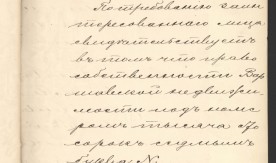 По требованію заин
тересованнаго лица
свидѣтельствуетъ
въ томъ что право
собственности Вар
шавской недвижи
мости подъ номе
ромъ тысяча
сорокъ седьмымъ
буква N.